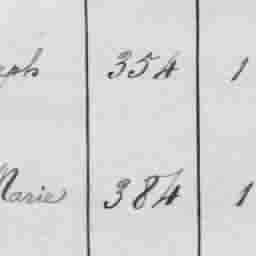 eph 354 1
Marie 384 1